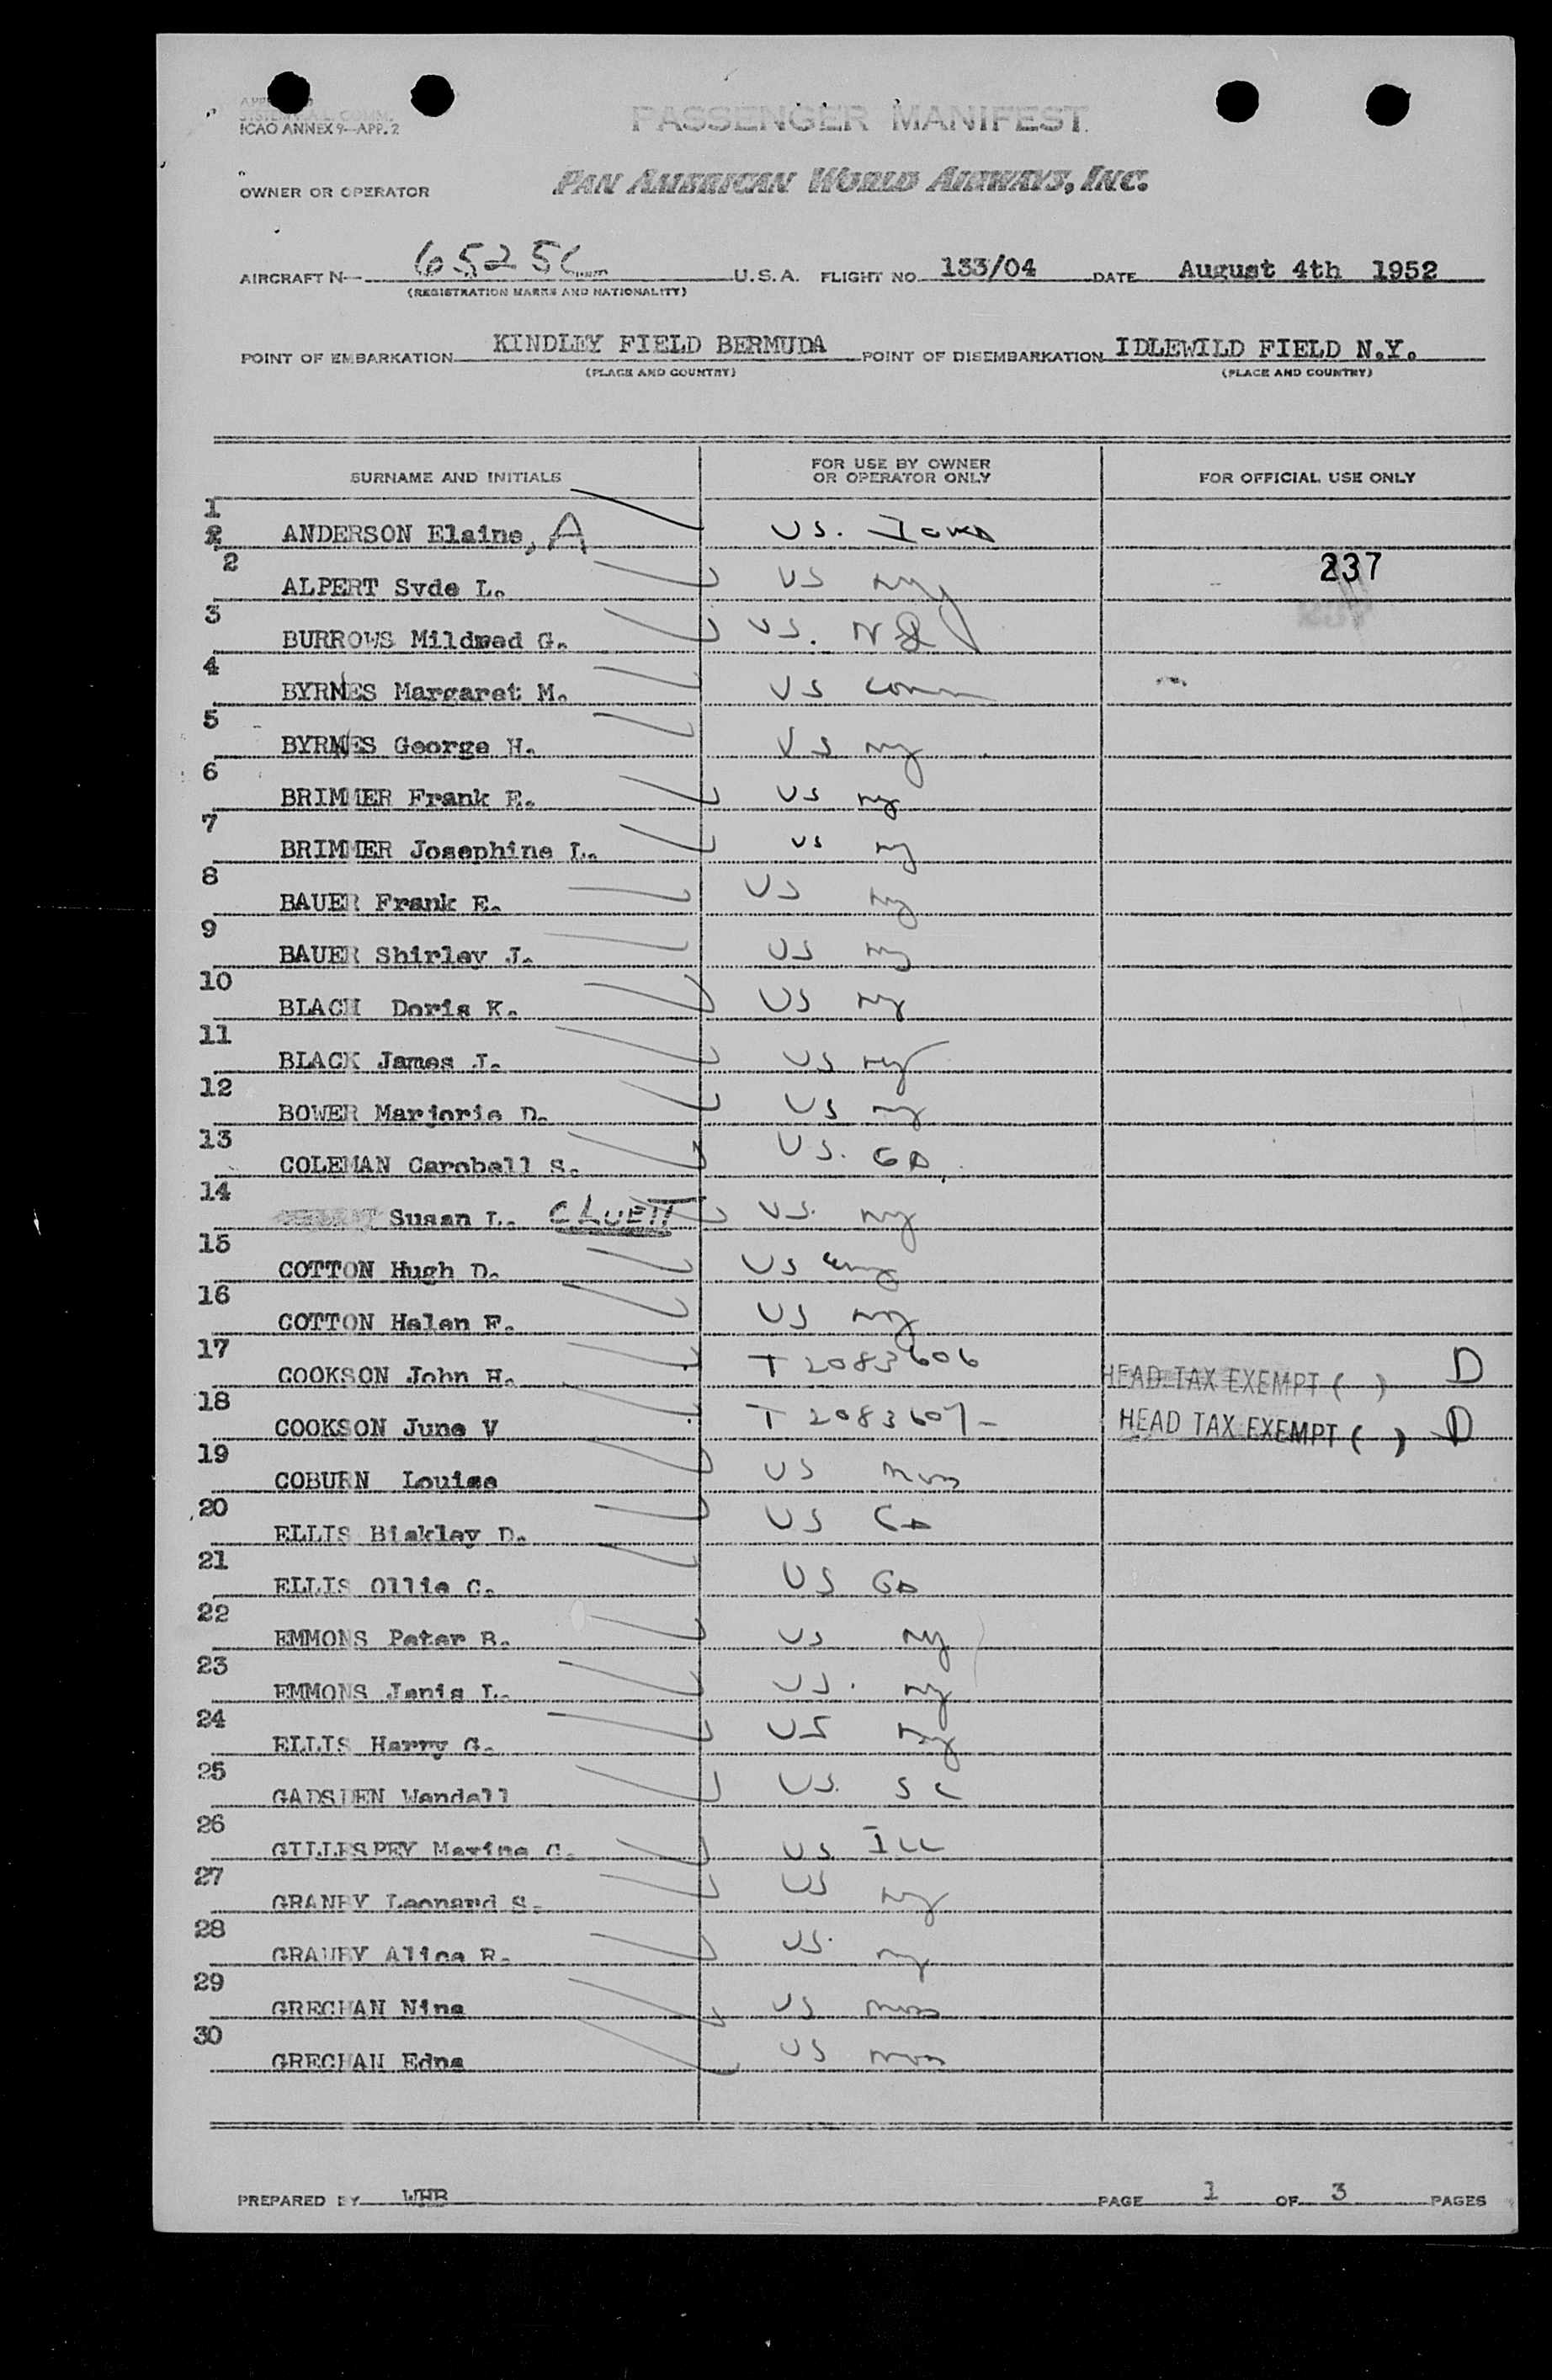 ICAO ANNEX 9—APP. 2
PASSENGER MANIFEST
OWNER OR OPERATOR PAN AMERICAN WORLD AIRWAYS, INC.
AIRCRAFT N— 6525C U.S.A. FLIGHT NO. 133/04 DATE August 4th 1952
(REGISTRATION MARKS AND NATIONALITY)
POINT OF EMBARKATION KINDLEY FIELD BERMUDA POINT OF DISEMBARKATION IDLEWILD FIELD N.Y.
(PLACE AND COUNTRY) (PLACE AND COUNTRY)
SURNAME AND INITIALS FOR USE BY OWNER OR OPERATOR ONLY FOR OFFICIAL USE ONLY
1 ANDERSON Elaine, A US. Iowa
237
2 ALPERT Syde L. US NY
3 BURROWS Mildred G. US. NJ
4 BYRNES Margaret M. US Conn
5 BYRNES George H. US NY
6 BRIMMER Frank E. US NY
7 BRIMMER Josephine L. US NY
8 BAUER Frank E. US NY
9 BAUER Shirley J. US NY
10 BLACH Doris K. US NY
11 BLACK James J. US NY
12 BOWER Marjorie D. US NY
13 COLEMAN Carobell S. US. GA
14 Susan L. CLUETT US. NY
15 COTTON Hugh D. US NY
16 COTTON Helen F. US NY
17 COOKSON John H. T 2083606 HEAD TAX EXEMPT ( ) D
18 COOKSON June V T 2083607- HEAD TAX EXEMPT ( ) D
19 COBURN Louise US Mass
20 ELLIS Biskley D. US GA
21 ELLIS Ollie C. US GA
22 EMMONS Peter B. US NY
23 EMMONS Janis L. US. NY
24 ELLIS Harry G. US NY
25 GADSDEN Wendell US. SC
26 GILLESPEY Maxine C. US ILL
27 GRANBY Leonard S. US NY
28 GRAUBY Alice R. US. NY
29 GRECHAN Nina US Mass
30 GRECHAN Edna US Mass
PREPARED BY WHB PAGE 1 OF 3 PAGES